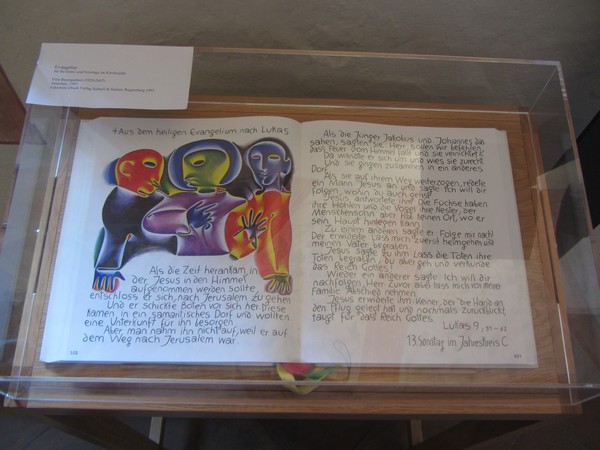 Evangeliar
+ Aus dem heiligen Evangelium nach Lukas
Als die Zeit herankam, in
der Jesus in den Himmel
aufgenommen werden sollte,
entschloss er sich, nach Jerusalem zu gehen
Und er schickte Boten vor sich her. Diese
kamen in ein samaritisches Dorf und wollten
eine Unterkunft für ihn besorgen
Aber man nahm ihn nicht auf, weil er auf
dem Weg nach Jerusalem war.
Als die Jünger Jakobus und Johannes das
sahen, sagten sie: Herr, sollen wir befehlen,
dass Feuer vom Himmel fällt und sie vernichtet?
Da wandte er sich um und wies sie zurecht.
Und sie gingen zusammen in ein anderes
Dorf.
Als sie auf ihrem Weg weiterzogen, redete
ein Mann Jesus an und sagte: Ich will dir
folgen, wohin du auch gehst.
Jesus antwortete ihm: Die Füchse haben
ihre Höhlen und die Vögel ihre Nester, der
Menschensohn aber hat keinen Ort, wo er
sein Haupt hinlegen kann.
Zu einem anderen sagte er: Folge mir nach!
Der erwiderte: Lass mich zuerst heimgehen und
meinen Vater begraben.
Jesus sagte zu ihm: Lass die Toten ihre
Toten begraben; du aber geh und verkünde
das Reich Gottes!
Wieder ein anderer sagte: Ich will dir
nachfolgen, Herr. Zuvor aber lass mich von meiner
Familie Abschied nehmen.
Jesus erwiderte ihm: Keiner, der die Hand an
den Pflug gelegt hat und nochmals zurückblickt,
taugt für das Reich Gottes.
Lukas 9, 51-62
13. Sonntag im Jahreskreis C